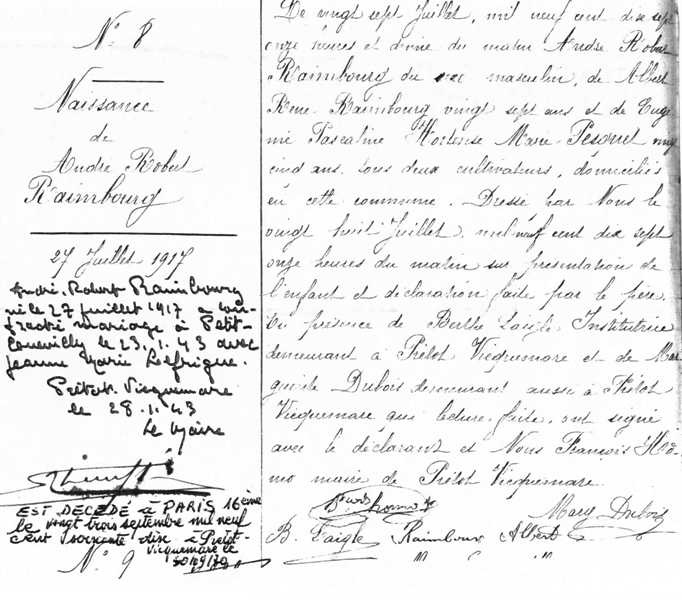 N° 8
Naissance
de
André Robert
Raimbourg
27 Juillet 1917
André. Robert Raimbourg
né le 27 juillet 1917 a con-
tracté mariage à Petit-
Couevilly le 23.1.43 avec
Jeanne Marie Lefrique.
Prétot. Vicquemare
le 28.1.43
Le Maire
EST DÉCÉDÉ à PARIS 16ème
le vingt trois septembre mil neuf
cent soixante dix à Prétot-
Vicquemare le
30/09/70
N° 9
Le vingt sept Juillet, mil neuf cent dix sept
onze heures et demie du matin André Robert
Raimbourg du sexe masculin, de Albert
René Raimbourg vingt sept ans et de Eugé
nie Pascaline Hortense Marie Pesquet vingt
cinq ans. tous deux cultivateurs, domiciliés
en cette commune. Dressé par Nous le
vingt huit Juillet, mil neuf cent dix sept
onze heures du matin sur présentation de
l'enfant et déclaration faite par le père.
En présence de Berthe Laigle Institutrice
demeurant à Prétot Vicquemare et de Mar
guerite Dubois demeurant aussi à Prétot
Vicquemare qui lecture faite, ont signé
avec le déclarant et Nous François
maire de Prétot Vicquemare.
Mary Dubois
B. Laigle Raimbourg Albert